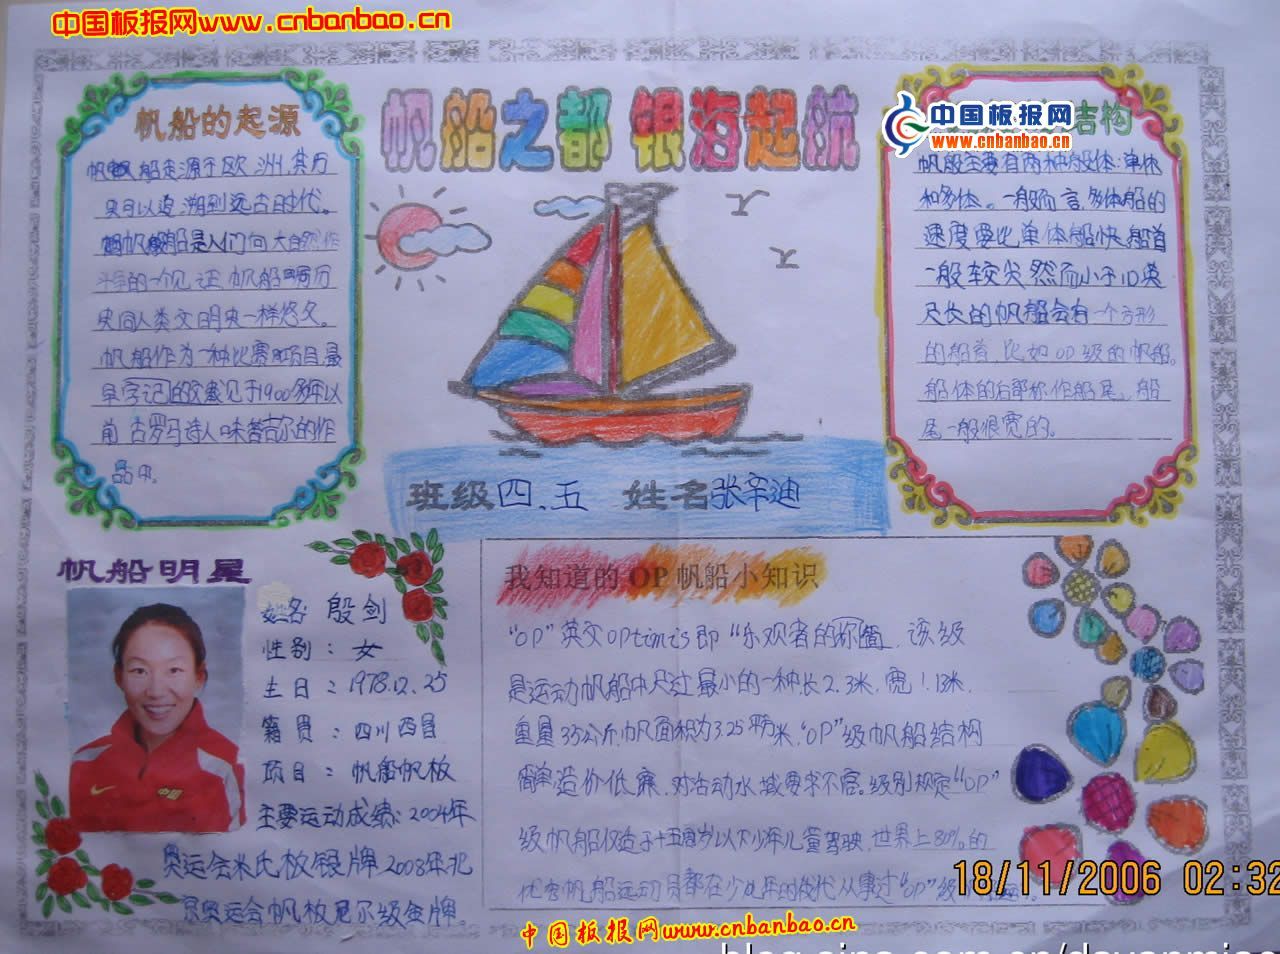 中国板报网www.cnbanbao.cn
帆船之都 银海起航
中国板报网
www.cnbanbao.cn
帆船的起源
帆船起源于欧洲,其历
史可以追溯到远古时代。
帆船是人们向大自然作
斗争的一个见证,帆船历
史同人类文明史一样悠久。
帆船作为一种比赛项目,最
早的文献见于1900多年以
前古罗马诗人味普吉尔的作
品中。
结构
帆船主要有两种船体:单体
和多体。一般而言,多体船的
速度要比单体船快,船首
一般较尖,然而小于10英
尺长的帆船会有一个方形
的船首,比如OP级的帆船。
船体的后部称作船尾。船
尾一般很宽的。
班级四、五 姓名张辛迪
帆船明星
姓名:殷剑
性别:女
生日:1978.12.25
籍贯:四川西昌
项目:帆船帆板
主要运动成绩:2004年
奥运会米氏板银牌2008年北
京奥运会帆板尼尔级金牌。
我知道的OP帆船小知识
“OP”英文OPtimis即“乐观者的称谓,该级
是运动帆船中尺寸最小的一种,长2.3米,宽1.13米,
重量35公斤,帆面积为3.25平方米,“OP”级帆船结构
简单,造价低廉,对活动水域要求不高。级别规定“OP”
级帆船仅适于十五周岁以下少年儿童驾驶,世界上80%的
优秀帆船运动员都在少年的时代从事过“OP”级
18/11/2006 02:32
中国板报网www.cnbanbao.cn